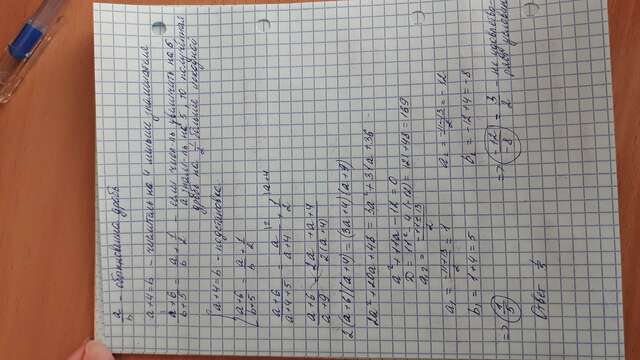 a/b - обыкновенная дробь
a+4=b - числитель на 4 меньше знаменателя
(a+6)/(b+5) = a/b + 1/2 - если числ-ль увеличить на 6,
а знамен-ль на 5, то получится
дробь на 1/2 больше исходной
{ a+4=b - подстановка
(a+6)/(b+5) = a/b + 1/2
(a+6)/(a+4+5) = a/(a+4) + 1/2
(a+6)/(a+9) = (2a+a+4)/(2(a+4))
2(a+6)(a+4)=(3a+4)(a+9)
2a²+20a+48=3a²+31a+36
a²+11a-12=0
D=11²-4·(-12)=121+48=169
a₁,₂ = (-11±13)/2
a₁ = (-11+13)/2 = 1
a₂ = (-11-13)/2 = -12
b₁ = 1+4=5
b₂ = -12+4=-8
=> 1/5
=> -12/-8 = 3/2 - не удовлетво-
ряет условию
Ответ 1/5